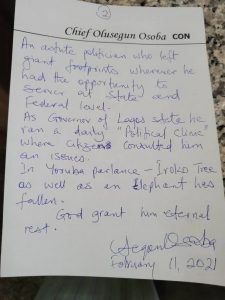 (2)
Chief Olusegun Osoba CON
An astute politician who left
giant footprints wherever he
had the opportunity to
server at State and
Federal level.
As Governor of Lagos state he
ran a daily "Political Clinic"
where citizens consulted him
on issues.
In Yoruba parlance - Iroko Tree
as well as an Elephant has
fallen.
Good grant him eternal
rest.
Segun Osoba
February 11, 2021